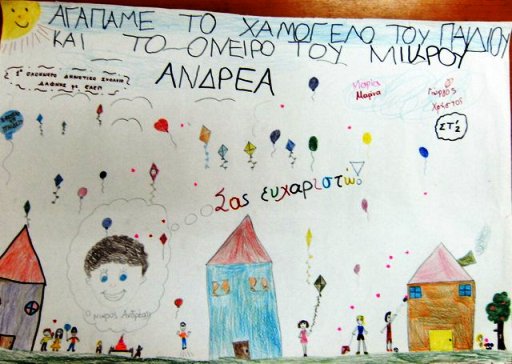 ΑΓΑΠΑΜΕ ΤΟ ΧΑΜΟΓΕΛΟ ΤΟΥ ΠΑΙΔΙΟΥ
ΚΑΙ ΤΟ ΟΝΕΙΡΟ ΤΟΥ ΜΙΚΡΟΥ
ΑΝΔΡΕΑ
1ο ΟΛΟΗΜΕΡΟ ΔΗΜΟΤΙΚΟ ΣΧΟΛΕΙΟ
ΔΑΦΝΗΣ με ΕΑΕΠ
Μαρία
Μαρία
Γιώργος
Χρήστος
ΣΤ2
Σας ευχαριστώ!
Ο μικρός Ανδρέας